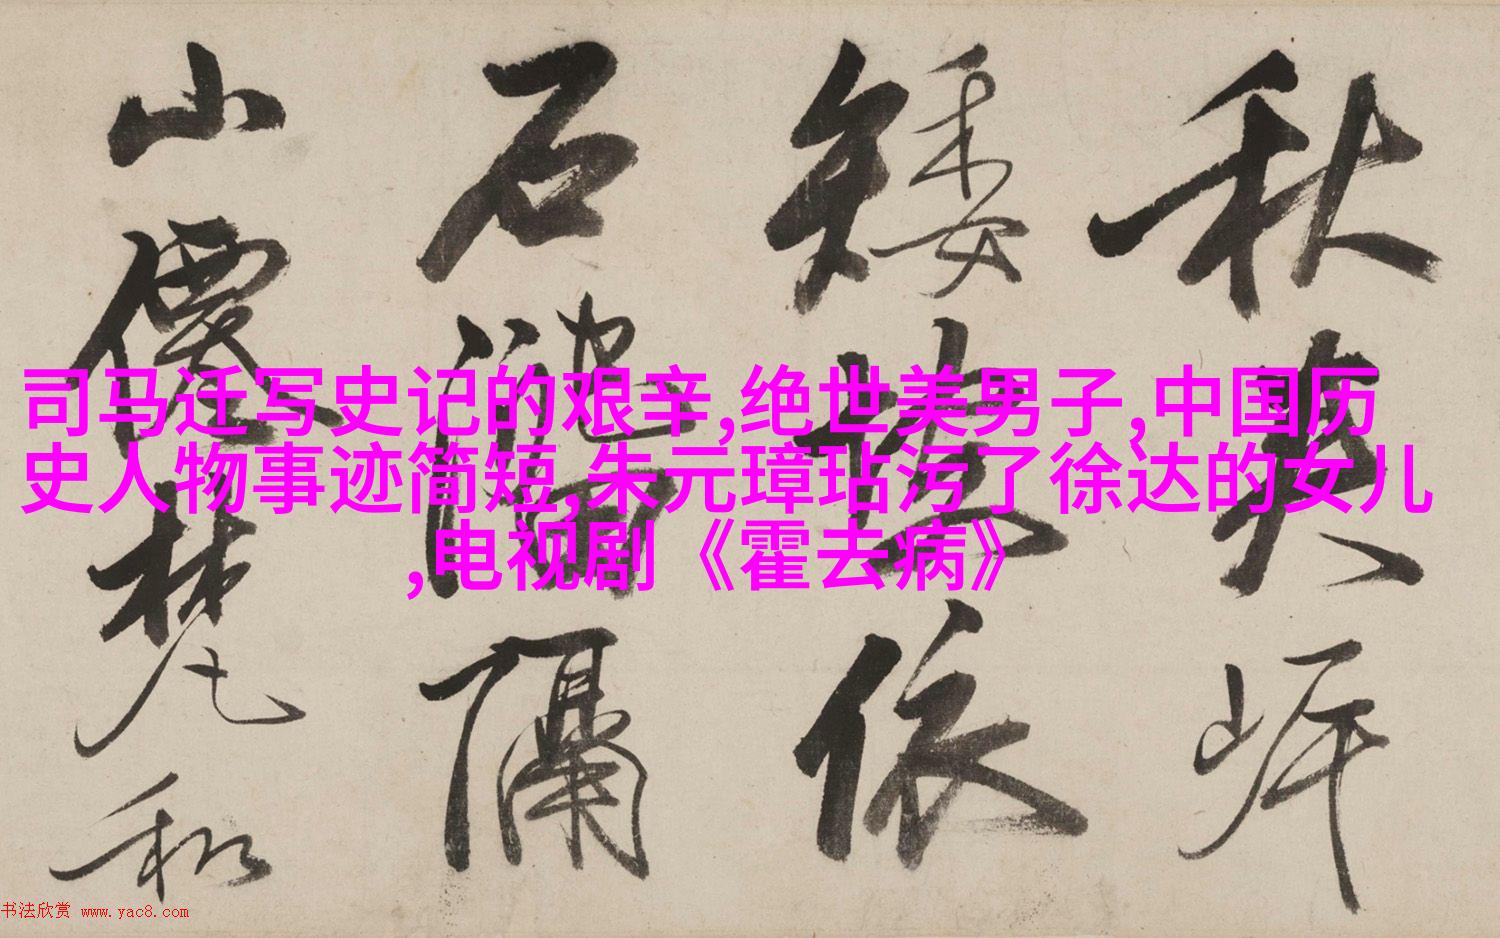 司马迁写史记的艰辛,绝世美男子,中国历
史人物事迹简短,朱元璋玷污了徐达的女儿
,电视剧《霍去病》
秋
矮依
石隔
山僊梵和
书法欣赏 www.yac8.com